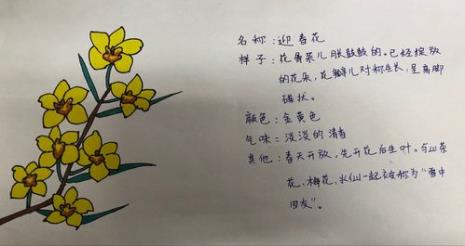 名称：迎春花
样子：花骨朵儿胀鼓鼓的。已经绽放
的花朵，花瓣儿对称生长，呈高脚
碟状。
颜色：金黄色
气味：淡淡的清香
其他：春天开放，先开花后生叶。与山茶
花、梅花、水仙一起被称为“雪中
四友”。